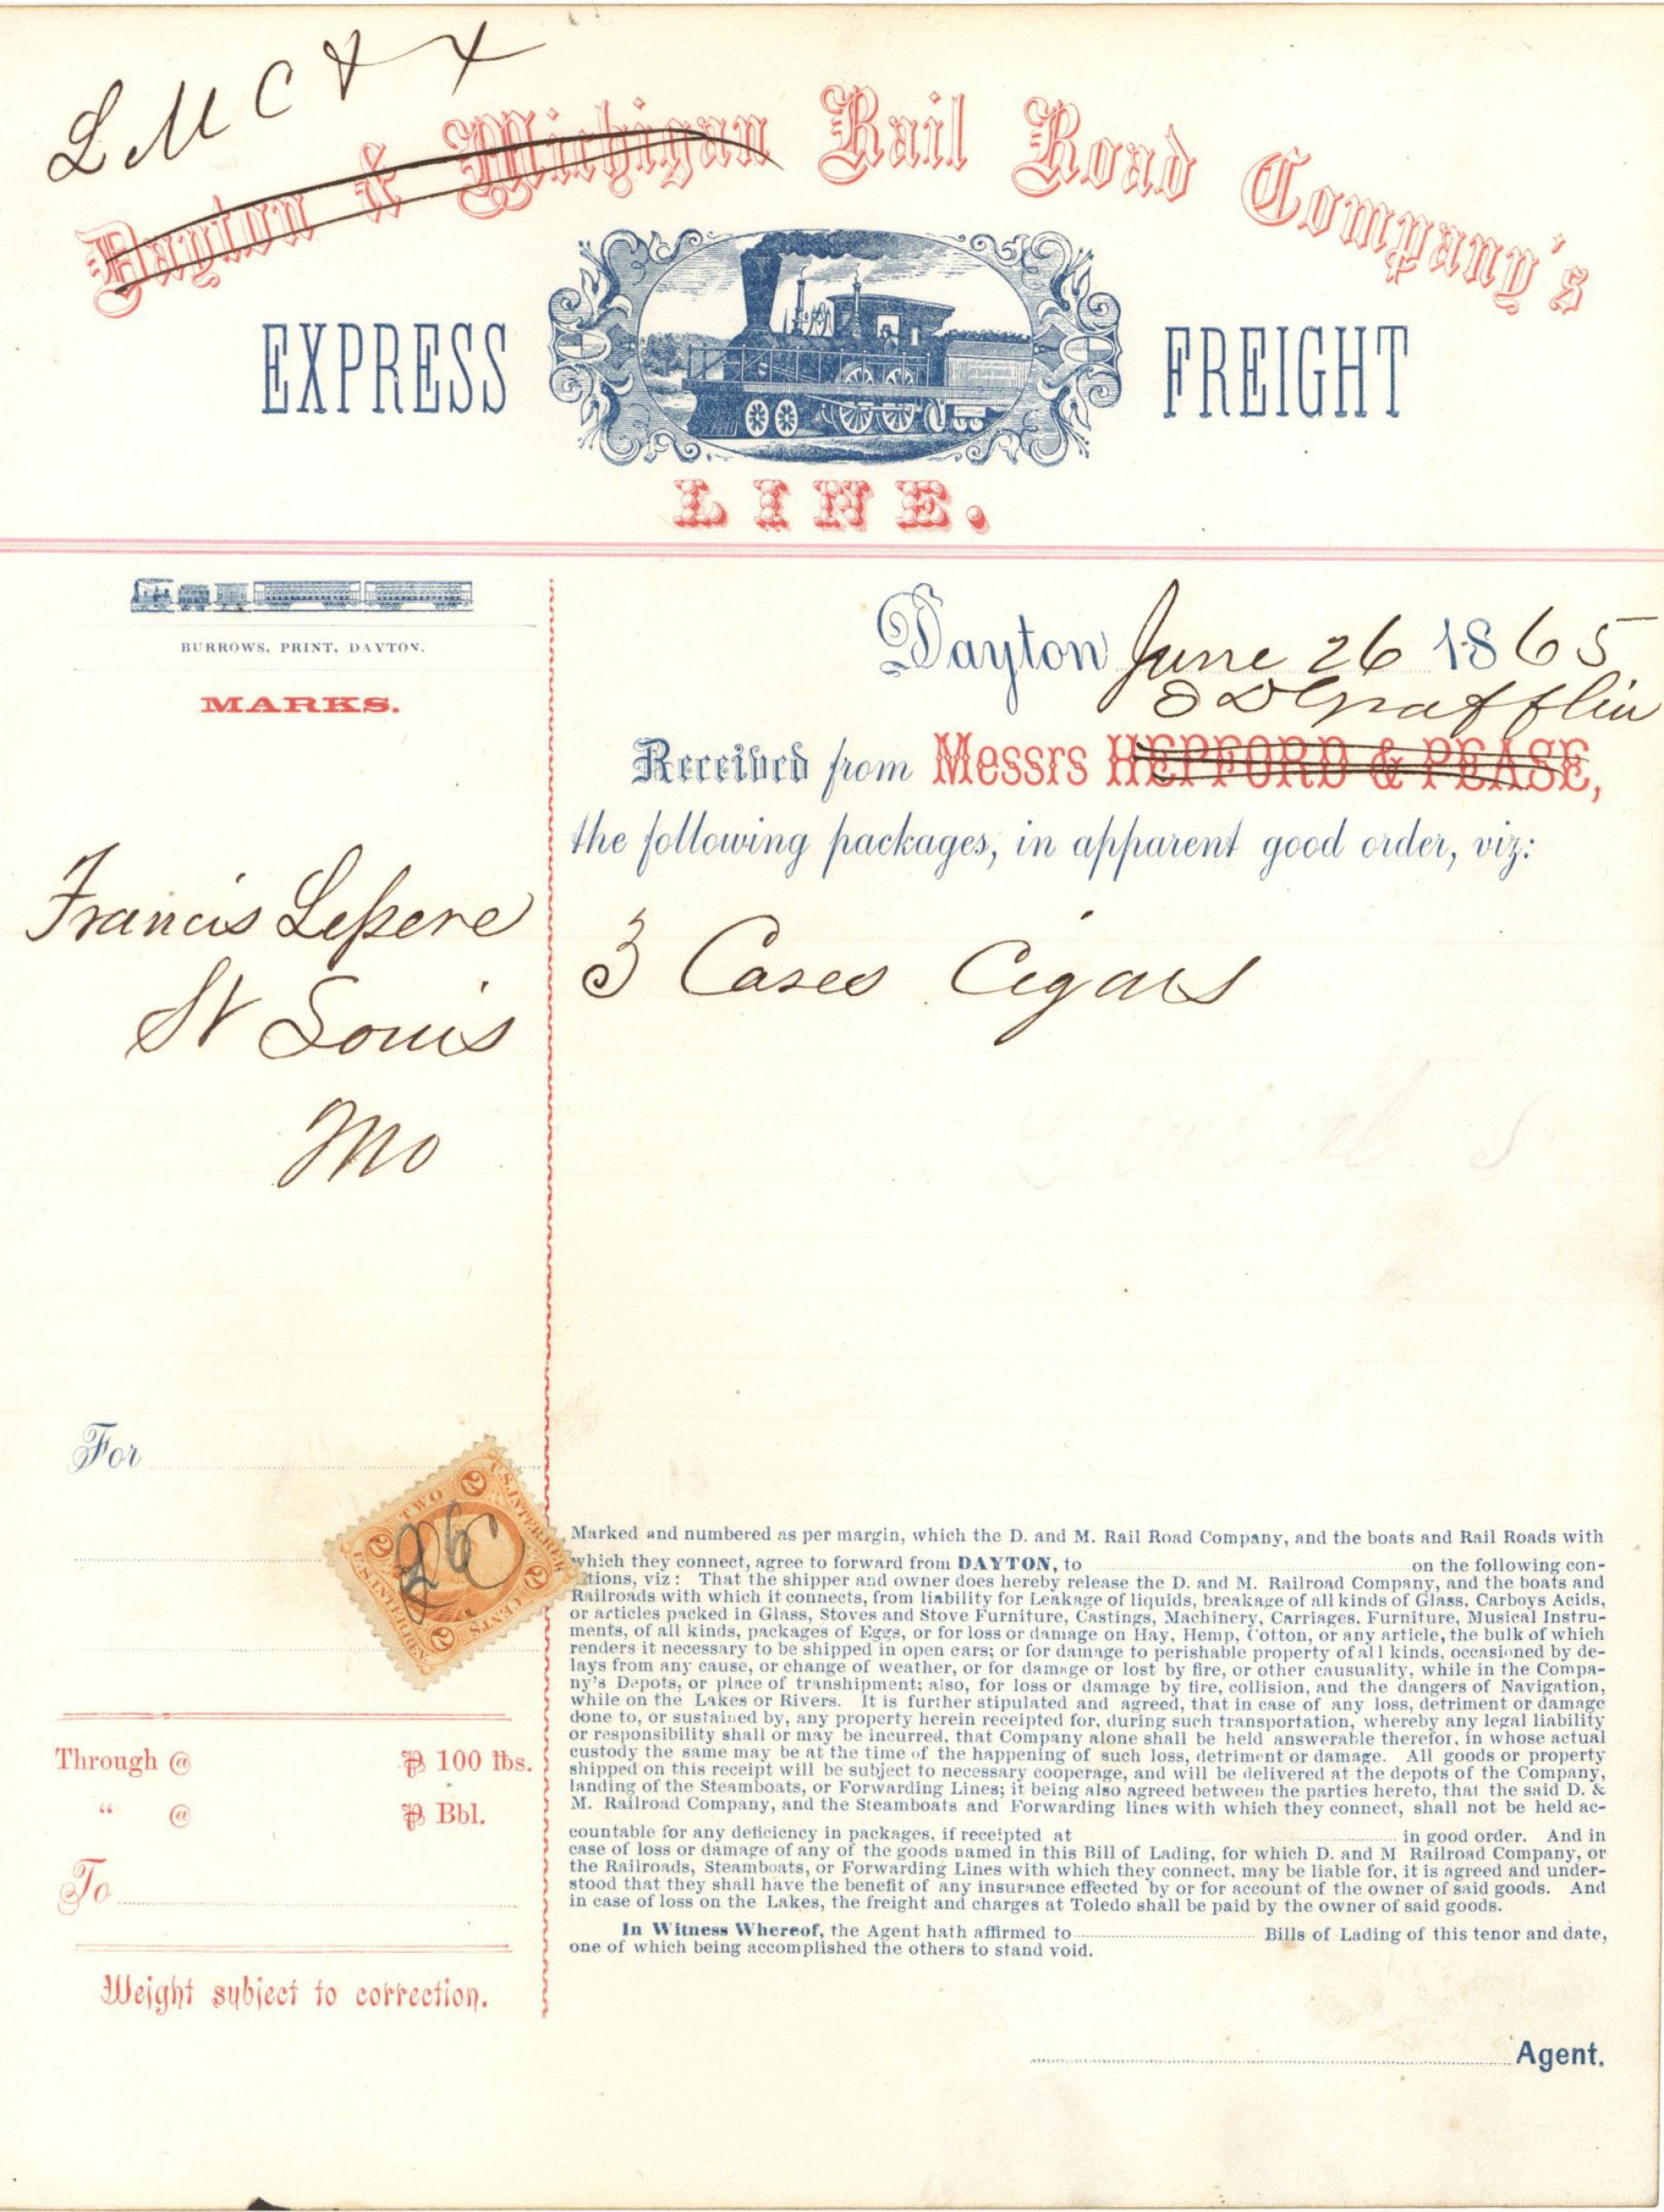 L M C &
Dayton & Michigan Rail Road Company's
EXPRESS FREIGHT
LINE.
BURROWS, PRINT, DAYTON.
MARKS.
Francis Lepere
St Louis
Mo
For
Through @ ₱ 100 lbs.
" @ ₱ Bbl.
To
Weight subject to correction.
Dayton June 26 1865
Grafflin
Received from Messrs HEPFORD & PEASE,
the following packages, in apparent good order, viz:
3 Cases Cigars
U.S. INTER. REV.
TWO
2 2
CENTS
2 2
U.S. INTER. REV.
26
Marked and numbered as per margin, which the D. and M. Rail Road Company, and the boats and Rail Roads with
which they connect, agree to forward from DAYTON, to on the following con-
tions, viz: That the shipper and owner does hereby release the D. and M. Railroad Company, and the boats and
Railroads with which it connects, from liability for Leakage of liquids, breakage of all kinds of Glass, Carboys Acids,
or articles packed in Glass, Stoves and Stove Furniture, Castings, Machinery, Carriages. Furniture, Musical Instru-
ments, of all kinds, packages of Eggs, or for loss or damage on Hay, Hemp, Cotton, or any article, the bulk of which
renders it necessary to be shipped in open cars; or for damage to perishable property of all kinds, occasioned by de-
lays from any cause, or change of weather, or for damage or lost by fire, or other causuality, while in the Compa-
ny's Depots, or place of transhipment; also, for loss or damage by fire, collision, and the dangers of Navigation,
while on the Lakes or Rivers. It is further stipulated and agreed, that in case of any loss, detriment or damage
done to, or sustained by, any property herein receipted for, during such transportation, whereby any legal liability
or responsibility shall or may be incurred, that Company alone shall be held answerable therefor, in whose actual
custody the same may be at the time of the happening of such loss, detriment or damage. All goods or property
shipped on this receipt will be subject to necessary cooperage, and will be delivered at the depots of the Company,
landing of the Steamboats, or Forwarding Lines; it being also agreed between the parties hereto, that the said D. &
M. Railroad Company, and the Steamboats and Forwarding lines with which they connect, shall not be held ac-
countable for any deficiency in packages, if receipted at in good order. And in
case of loss or damage of any of the goods named in this Bill of Lading, for which D. and M Railroad Company, or
the Railroads, Steamboats, or Forwarding Lines with which they connect, may be liable for, it is agreed and under-
stood that they shall have the benefit of any insurance effected by or for account of the owner of said goods. And
in case of loss on the Lakes, the freight and charges at Toledo shall be paid by the owner of said goods.
In Witness Whereof, the Agent hath affirmed to Bills of Lading of this tenor and date,
one of which being accomplished the others to stand void.
Agent.